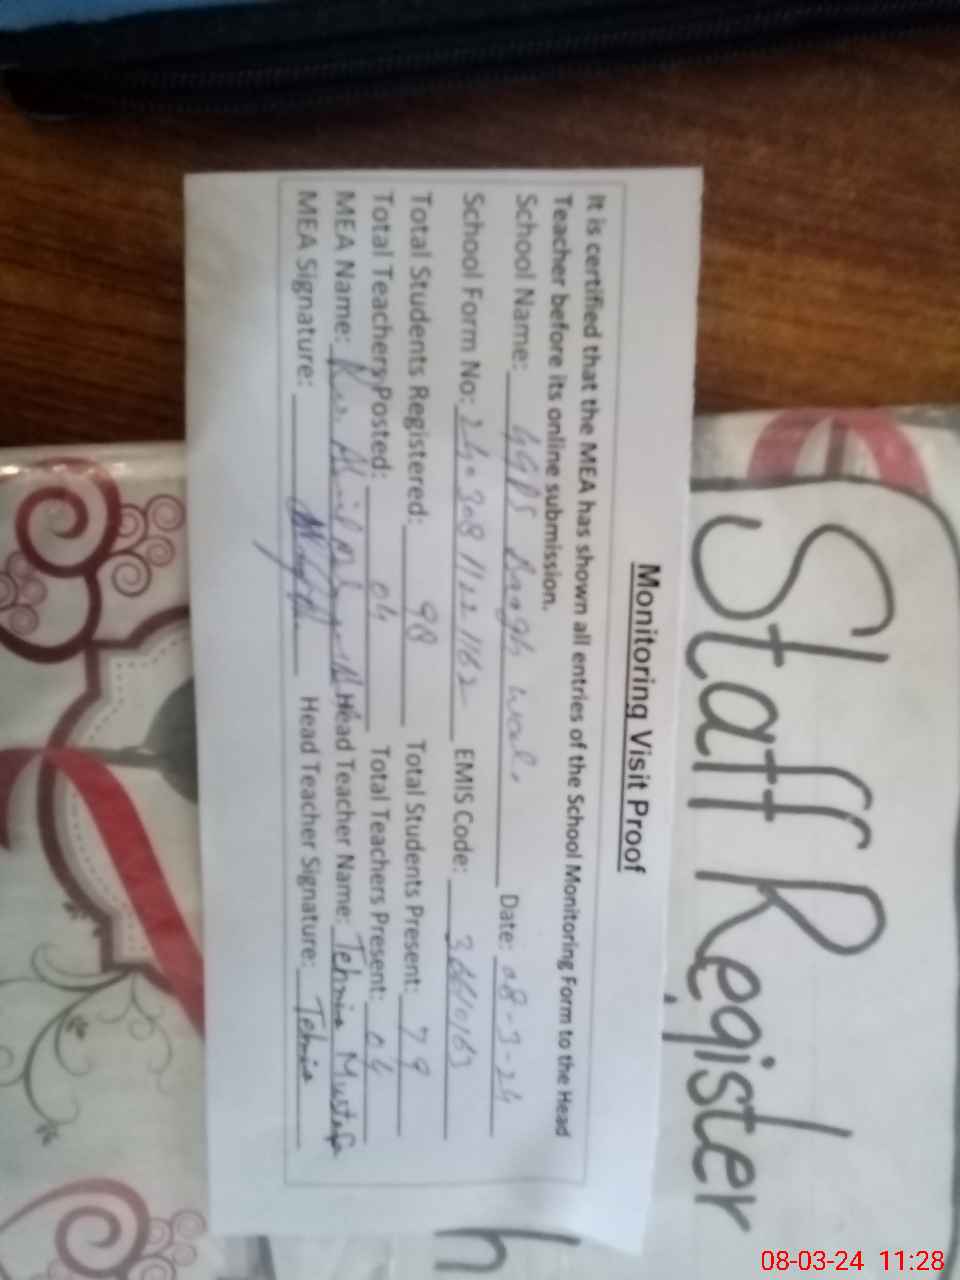 Monitoring Visit Proof
It is certified that the MEA has shown all entries of the School Monitoring Form to the Head
Teacher before its online submission.
School Name: GGPS Date: 08-3-24
School Form No: EMIS Code:
Total Students Registered: 98 Total Students Present: 79
Total Teachers Posted: 04 Total Teachers Present: 04
MEA Name: Head Teacher Name: Tehmina Mustafa
MEA Signature: Head Teacher Signature: Tehmina
Staff Register
08-03-24 11:28